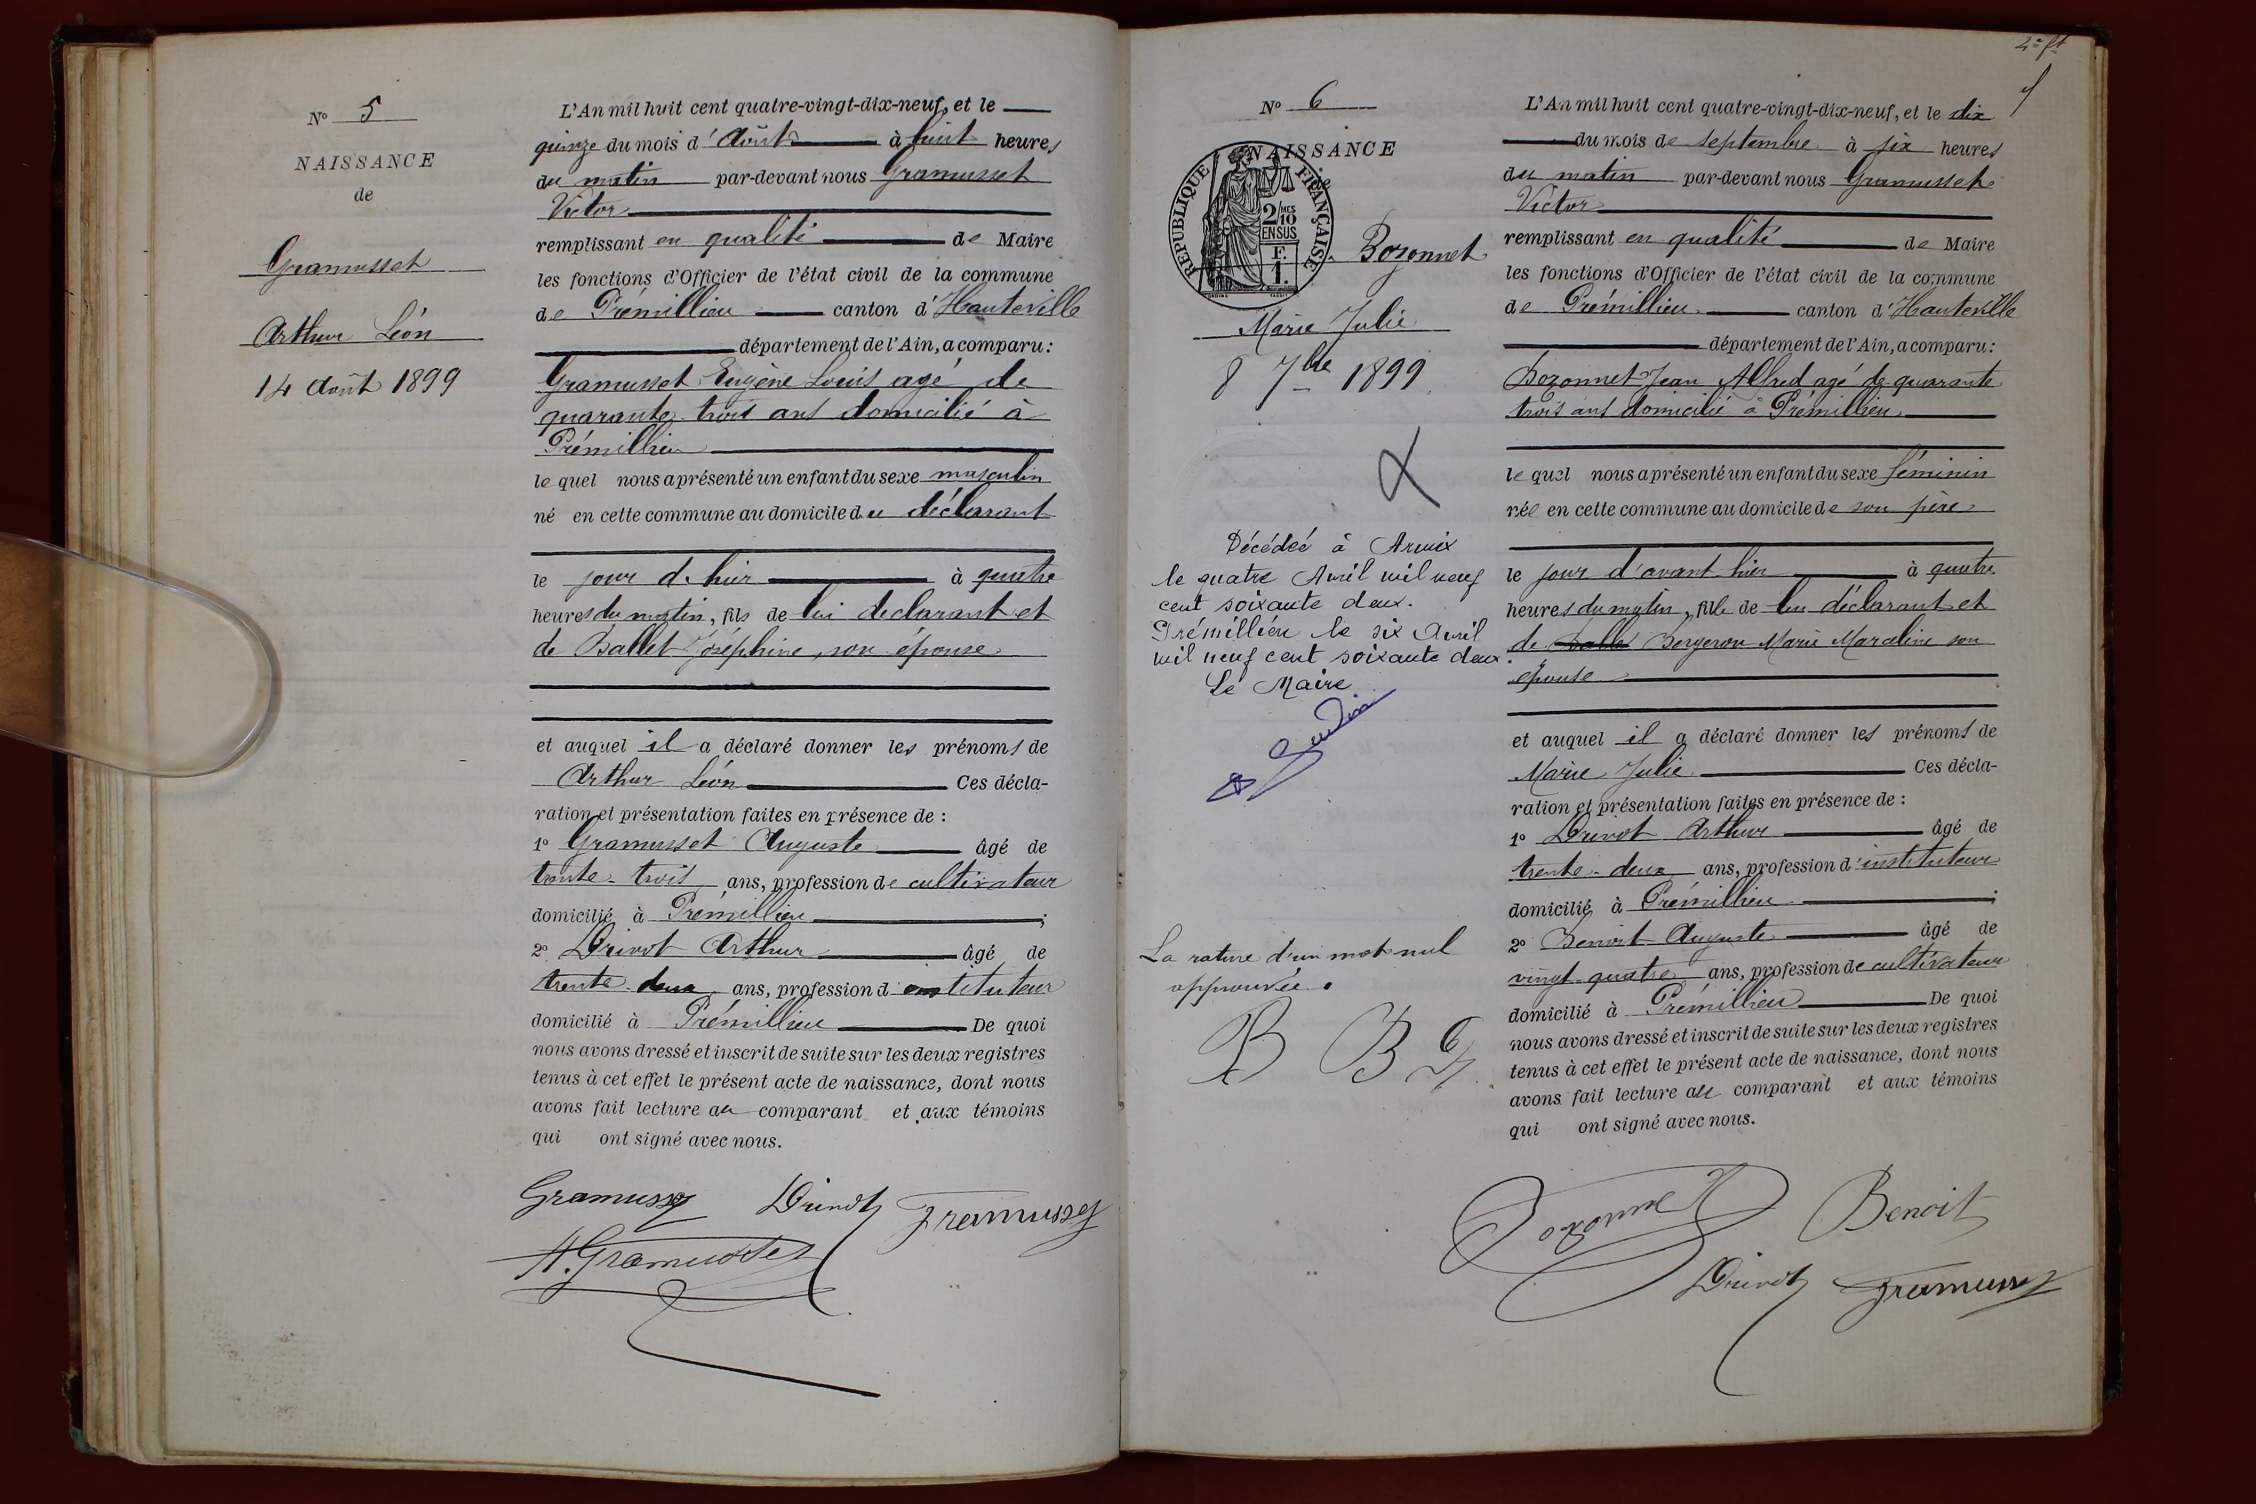 Nº 5
NAISSANCE
de
Gramusset
Arthur Léon
14 Août 1899
L'An mil huit cent quatre-vingt-dix-neuf, et le
quinze du mois d'Août à huit heures
du matin par-devant nous Gramusset
Victor
remplissant en qualité de Maire
les fonctions d'Officier de l'état civil de la commune
de Prémillieu canton d'Hauteville
département de l'Ain, a comparu :
Gramusset Eugène Louis agé de
quarante trois ans domicilié à
Prémillieu
lequel nous a présenté un enfant du sexe masculin
né en cette commune au domicile du déclarant
le jour d'hier à quatre
heures du matin, fils de lui déclarant et
de Ballet Joséphine, son épouse
et auquel il a déclaré donner les prénoms de
Arthur Léon Ces décla-
ration et présentation faites en présence de :
1º Gramusset Auguste âgé de
trente-trois ans, profession de cultivateur
domicilié à Prémillieu ;
2º Drivot Arthur âgé de
trente-deux ans, profession d'instituteur
domicilié à Prémillieu De quoi
nous avons dressé et inscrit de suite sur les deux registres
tenus à cet effet le présent acte de naissance, dont nous
avons fait lecture au comparant et aux témoins
qui ont signé avec nous.
Gramusset Drivot Gramusset
A. Gramusset
2e ft
Nº 6
NAISSANCE
de
RÉPUBLIQUE FRANÇAISE
2/10 MES
EN SUS
F.
1.
Bozonnet
Marie Julie
8 7bre 1899
Décédée à Armix
le quatre Avril mil neuf
cent soixante deux.
Prémillieu le six Avril
mil neuf cent soixante deux.
Le Maire
La rature d'un mot nul
approuvée.
B B G
L'An mil huit cent quatre-vingt-dix-neuf, et le dix
du mois de septembre à six heures
du matin par-devant nous Gramusset
Victor
remplissant en qualité de Maire
les fonctions d'Officier de l'état civil de la commune
de Prémillieu canton d'Hauteville
département de l'Ain, a comparu :
Bozonnet Jean Alfred agé de quarante
trois ans domicilié à Prémillieu
lequel nous a présenté un enfant du sexe féminin
née en cette commune au domicile de son père
le jour d'avant-hier à quatre
heures du matin, fille de lui déclarant et
de Bergeron Marie Maraline son
épouse
et auquel il a déclaré donner les prénoms de
Marie Julie Ces décla-
ration et présentation faites en présence de :
1º Drivot Arthur âgé de
trente-deux ans, profession d'instituteur
domicilié à Prémillieu ;
2º Benoit Auguste âgé de
vingt-quatre ans, profession de cultivateur
domicilié à Prémillieu De quoi
nous avons dressé et inscrit de suite sur les deux registres
tenus à cet effet le présent acte de naissance, dont nous
avons fait lecture au comparant et aux témoins
qui ont signé avec nous.
Bozonnet Benoit
Drivot Gramusset